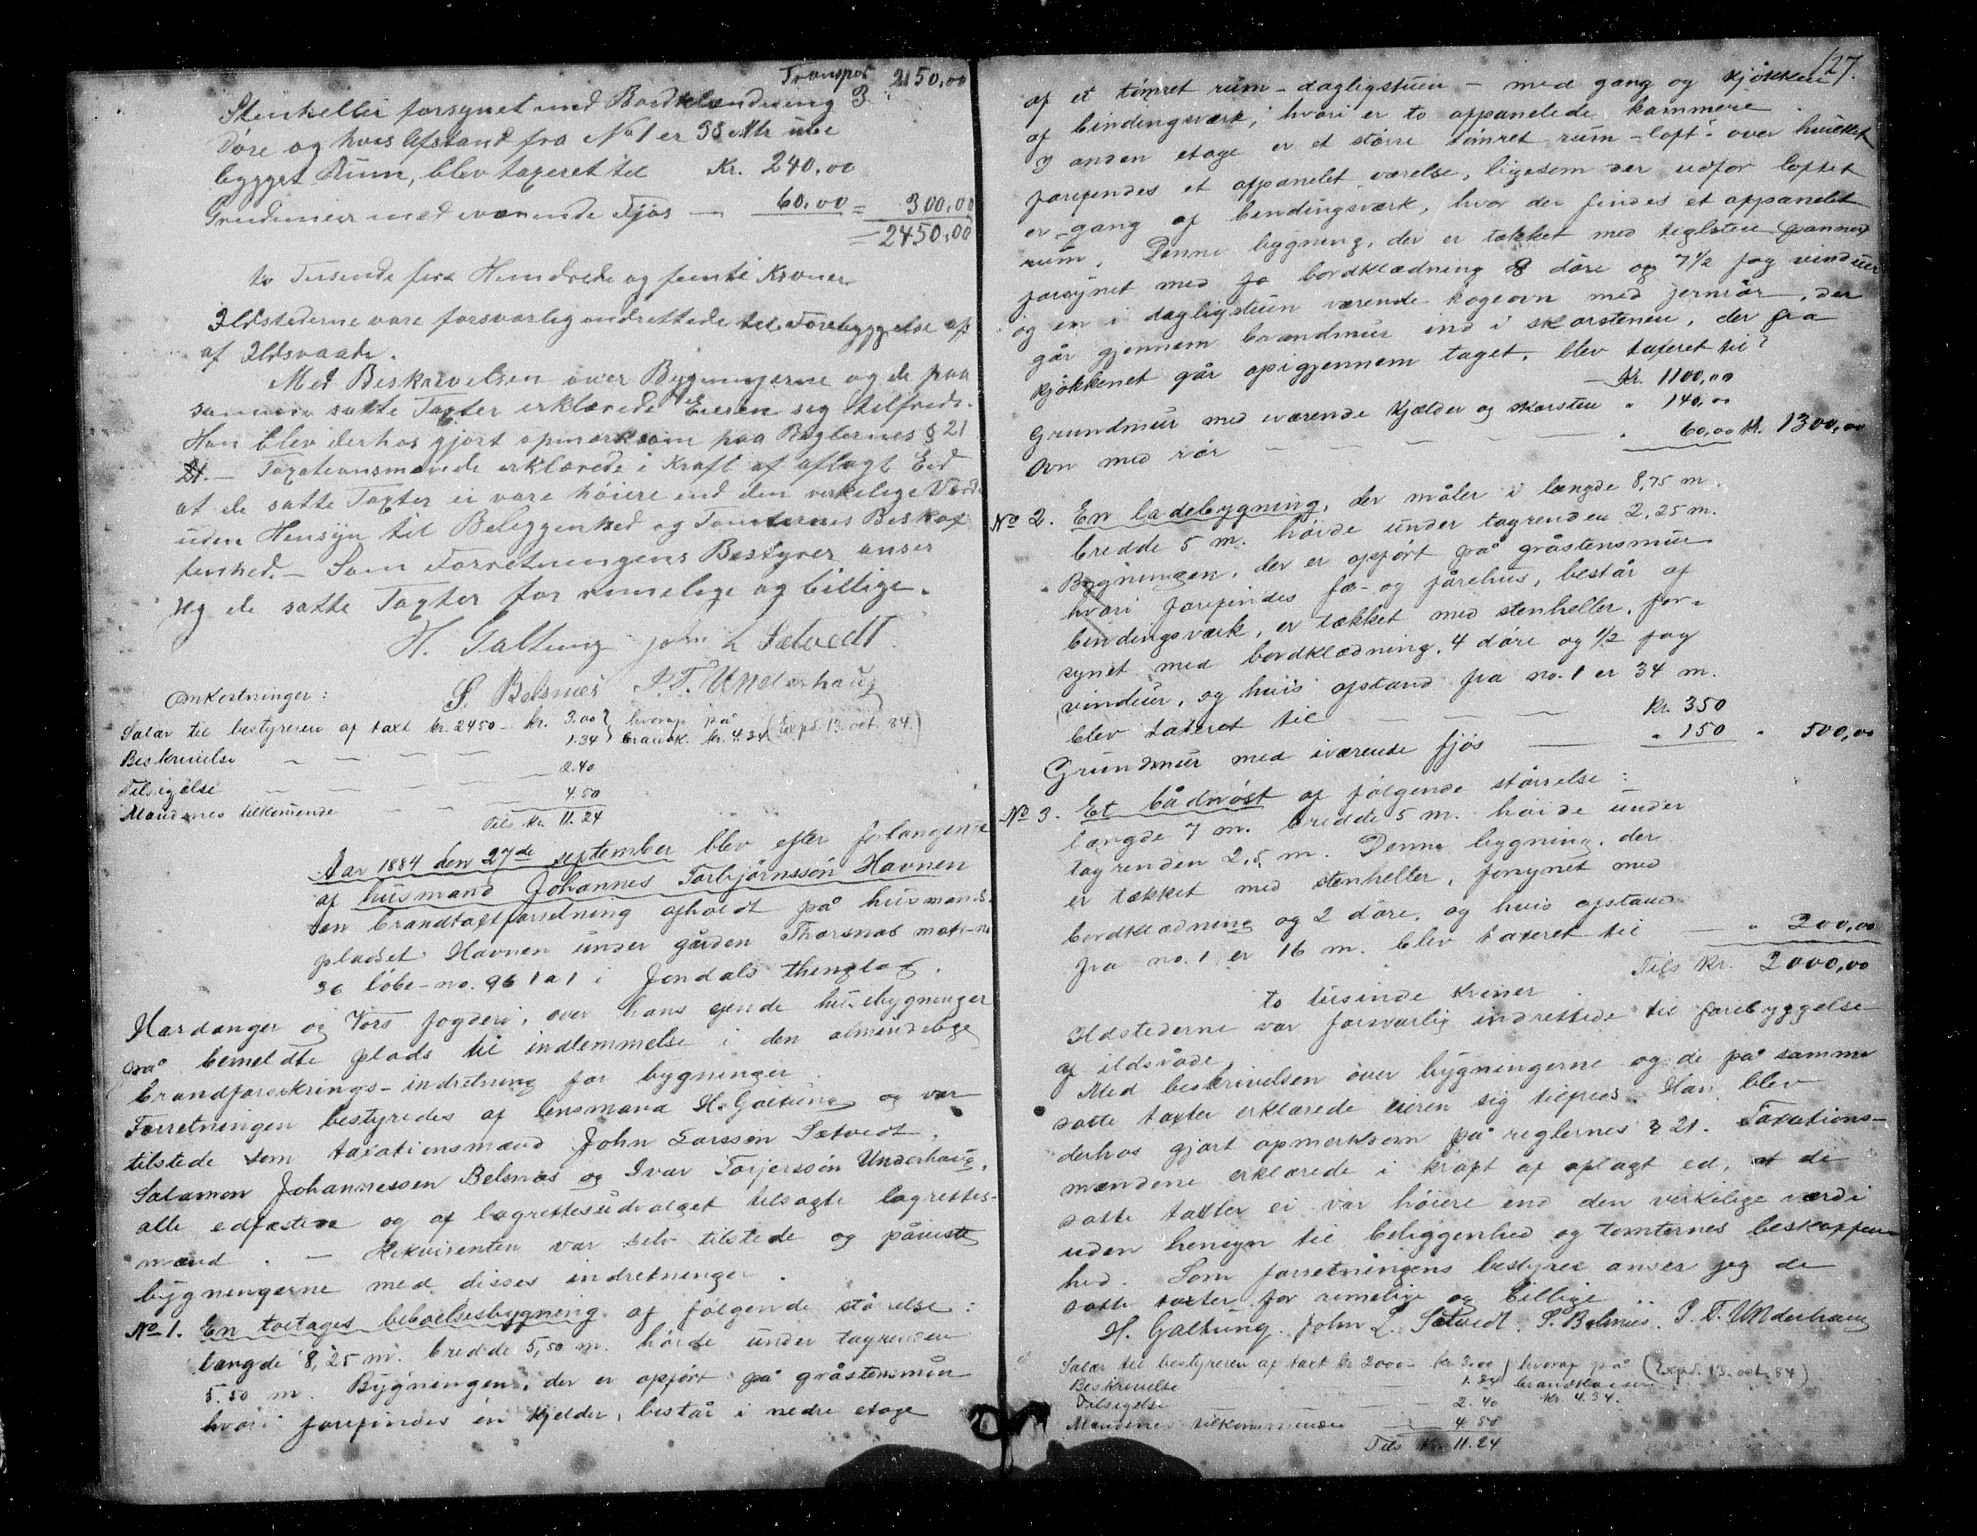 Transpor 2150,00
Stenheller forsynet med Bordklædning 3
Døre og hvis Afstand fra No 1 er 38 Mtr
bygget Rum, blev taxeret til Kr. 240,00
Grundmur med værende Fjøs — 60,00 = 300,00
= 2450,00
to Tusende fire Hundrede og femti Kroner
Ildstederne vare forsvarlig indrettede til Forebyggelse af
af Ildsvaade.
Med Beskrivelsen over Bygningerne og de paa
samme satte Taxter erklærede Eieren sig tilfreds.
Han blev derhos gjort opmærksom paa Reglernes § 21
21. — Taxationsmændene erklærede i Kraft af aflagt Eed
at de satte Taxter ei vare høiere end den virkelige Værdi
uden Hensyn til Beliggenhed og Tomternes Beskaf
fenhed. — Som Forretningens Bestyrer anser
jeg de satte Taxter for rimelige og billige.
H. Galtung John L Sætvedt
S. Belsnæs I. T. Underhaug
Omkostninger:
Salær til bestyreren af taxt kr. 2450 — kr. 3.00 } hvoraf på (Exp. 13. oct. 84.)
Beskrivelse — — — 1.34 } brandk. kr. 4.34
Tilsigelse — — — 2.40
Mændenes tilkomende — — — 4.50
Tils kr. 11.24
Aar 1884 den 27de september blev efter forlangende
af husmand Johannes Torbjørnssøn Havnen
en brandtaxtforretning afholdt på husmands-
pladset Havnen under gården Thorsnæs matr-no
36 løbe-no. 96 1 a 1 i Jondals thinglag,
Hardanger og Vors fogderi, over hans ejende husebygninger
på bemeldte plads til indlemmelse i den almindelige
brandforsikrings-indretning for bygninger.
Forretningen bestyredes af lensmand H. Galtung og var
tilstede som taxationsmænd John Larssøn Sætvedt,
Salamon Johannessen Belsnæs og Ivar Torjerssøn Underhaug,
alle edfæstede og af lagrettesudvalget tilsagte lagrettes-
mænd. — Rekvirenten var selv tilstede og påviste
bygningerne med disses indretninger.
No 1. En toetages beboelsesbygning af følgende størelse:
længde 8,25 m. bredde 5,50 m. høide under tagrenden
5.50 m. Bygningen, der er opført på gråstensmur
hvori forefindes en kjelder, består i nedre etage
127.
af et tømret rum - dagligstuen - med gang og kjøkken
af bindingsværk, hvori er to oppanelede kammere.
I anden etage er et større tømret rum - loft - over hvilket
forefindes et oppanelet værelse, ligesom der udfor loftet
er gang af bindingsværk, hvor der findes et oppanelet
rum. Denne bygning, der er tækket med teglsten (panner)
forsynet med bordklædning 8 døre og 7 1/2 fag vinduer
og en i dagligstuen værende kogeovn med jernrør, der
går gjennem brandmur ind i skorstenen, der fra
kjøkkenet går op igjennem taget, blev taxeret til
— Kr. 1100,00
Grundmur med iværende kjælder og skorsten " 140,00
Ovn med rør — — — — " 60,00 kr. 1300,00
No 2. En ladebygning, der måler i længde 8,75 m.
bredde 5 m. høide under tagrenden 2,25 m.
Bygningen, der er opført på gråstensmur
hvori forefindes fæ- og fårehus, består af
bindingsværk, er tækket med stenheller, for-
synet med bordklædning, 4 døre og 1/2 fag
vinduer, og hvis afstand fra no. 1 er 34 m.
blev taxeret til — — — kr. 350
Grundmur med iværende fjøs — " 150 " 500,00
No 3. Et bådnøst af følgende størrelse:
længde 7 m. bredde 5 m. høide under
tagrenden 2,5 m. Denne bygning, der
er tækket med stenheller, forsynet med
bordklædning og 2 døre, og hvis afstand
fra no. 1 er 16 m. blev taxeret til — " 200,00
Tils kr. 2000,00
to tusinde kroner.
Ildstederne var forsvarlig indrettede til forebyggelse
af ildsvåde.
Med beskrivelsen over bygningerne og de på samme
satte taxter erklærede eieren sig tilfreds. Han blev
derhos gjort opmærksom på reglernes § 21. Taxations-
mændene erklærede i kraft af aflagt ed, at de
satte taxter ei var høiere end den virkelige værdi
uden hensyn til beliggenhed og tomternes beskaffen-
hed. Som forretningens bestyrer anser jeg de
satte taxter for rimelige og billige.
H. Galtung. John L. Sætvedt. S. Belsnæs. I. T. Underhaug
Salær til bestyreren af taxt kr 2000 — kr 3.00 } hvoraf på (Exp. 13. oct. 84)
Beskrivelse — 1.34 } brandkassen
Tilsigelse — 2.40 kr 4.34.
Mændenes tilkommende — 4.50
Tils kr. 11.24